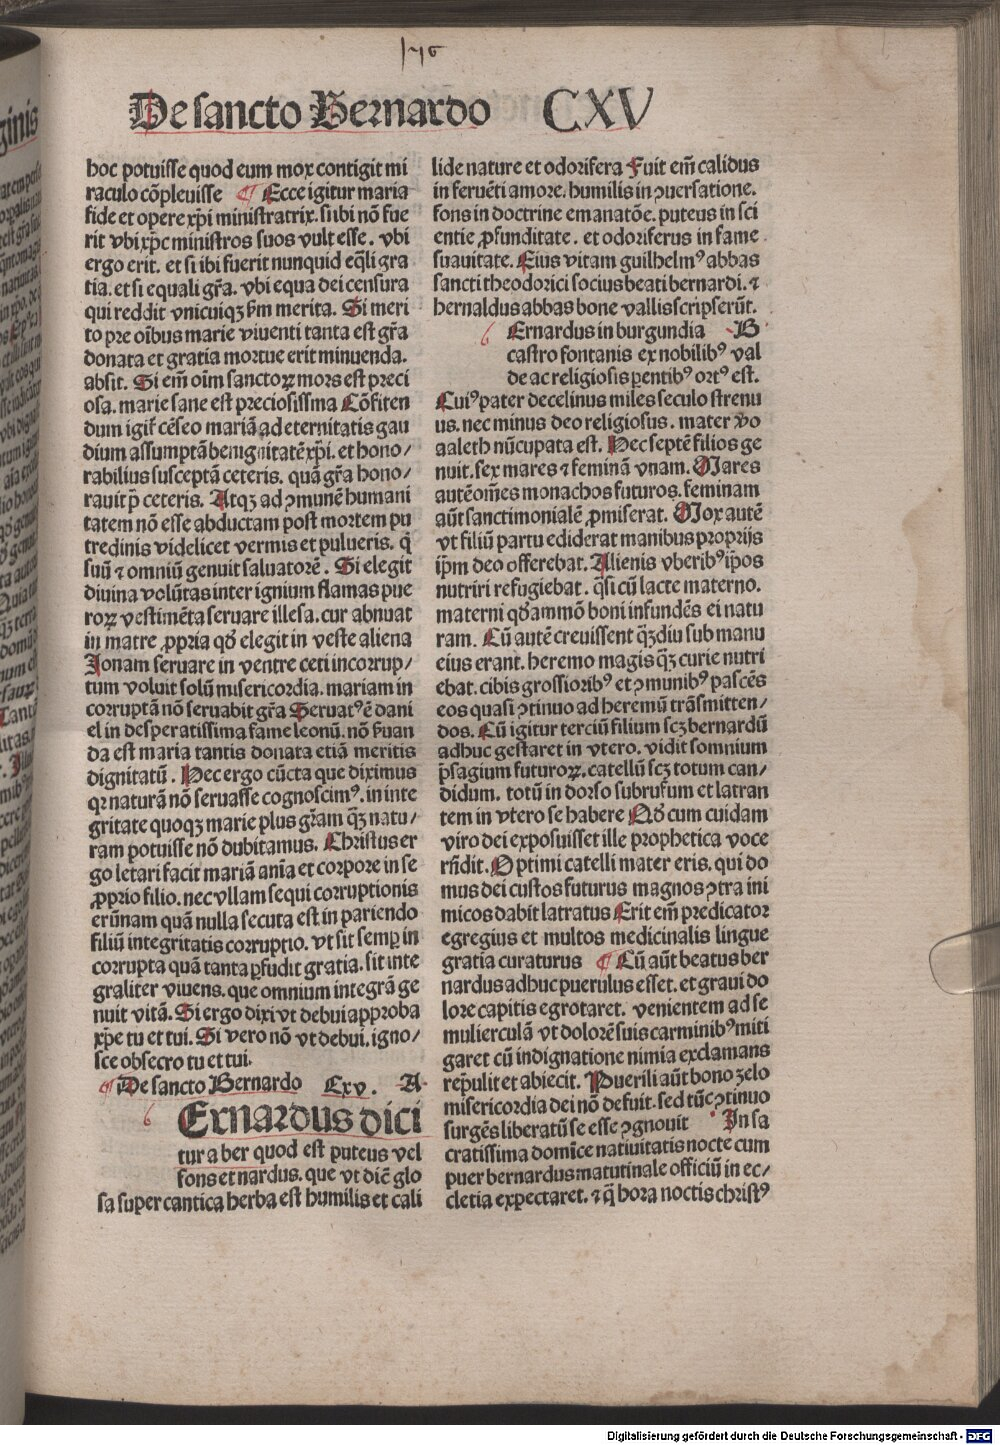 176
De sancto Bernardo CXV
hoc potuisse quod eum mox contigit mi
raculo cōpleuisse ¶ Ecce igitur maria
fide et opere xp̄i ministratrix. si ibi nō fue
rit vbi xp̄c ministros suos vult esse. vbi
ergo erit. et si ibi fuerit nunquid eq̄li gra
tia. et si equali gr̄a. vbi equa dei censura
qui reddit vnicuiqꝫ ẜm merita. Si meri
to pre oībus marie viuenti tanta est gr̄a
donata et gratia mortue erit minuenda.
absit. Si em̄ oīm sanctoꝝ mors est preci
osa. marie sane est preciosissima Cōfiten
dum igit᷑ cēseo mariā ad eternitatis gau
dium assumptā benignitatē xp̄i. et hono/
rabilius susceptā ceteris. quā gr̄a hono/
rauit p̄ ceteris. Atqꝫ ad ꝯmunē humani
tatem nō esse abductam post mortem pu
tredinis videlicet vermis et pulueris. q̄
suū ⁊ omniū genuit saluatorē. Si elegit
diuina volūtas inter ignium flamas pue
roꝝ vestimēta seruare illesa. cur abnuat
in matre ꝓpria qđ elegit in veste aliena
Jonam seruare in ventre ceti incorrup/
tum voluit solū misericordia. mariam in
corruptā nō seruabit gr̄a Seruatꝰ ē dani
el in desperatissima fame leonū. nō ẜuan
da est maria tantis donata etiā meritis
dignitatū. Nec ergo cūcta que diximus
qꝛ naturā nō seruasse cognoscimꝰ. in inte
gritate quoqꝫ marie plus gr̄am qꝫ natu/
ram potuisse nō dubitamus. Christus er
go letari facit mariā aīa et corpore in se
ꝓprio filio. nec vllam sequi corruptionis
erūnam quā nulla secuta est in pariendo
filiū integritatis corruptio. vt sit semꝑ in
corrupta quā tanta ꝑfudit gratia. sit inte
graliter viuens. que omnium integrā ge
nuit vitā. Si ergo dixi vt debui approba
xp̄e tu et tui. Si vero nō vt debui. igno/
sce obsecro tu et tui.
¶ De sancto Bernardo Cxv. A
6
Ernardus dici
tur a ber quod est puteus vel
fons et nardus. que vt dic̄ glo
sa super cantica herba est humilis et cali
lide nature et odorifera Fuit em̄ calidus
in feruēti amore. humilis in ꝯuersatione.
fons in doctrine emanatōe. puteus in sci
entie ꝓfunditate. et odoriferus in fame
suauitate. Eius vitam guilhelmꝰ abbas
sancti theodorici socius beati bernardi. ⁊
hernaldus abbas bone vallis scripserūt.
6 Ernardus in burgundia B
castro fontanis ex nobilibꝰ val
de ac religiosis ꝑentibꝰ ortꝰ est.
Cuiꝰ pater decelinus miles seculo strenu
us. nec minus deo religiosus. mater vo
aaleth nūcupata est. Nec septē filios ge
nuit. sex mares ⁊ feminā vnam. Mares
autē om̄es monachos futuros. feminam
aūt sanctimonialē ꝓmiserat. Mox autē
vt filiū partu ediderat manibus proprijs
ip̄m deo offerebat. Alienis vberibꝰ ip̄os
nutriri refugiebat. q̄si cū lacte materno.
materni qđammō boni infundēs ei natu
ram. Cū autē creuissent qꝫdiu sub manu
eius erant. heremo magis qꝫ curie nutri
ebat. cibis grossioribꝰ et ꝯmunibꝰ pascēs
eos quasi ꝯtinuo ad heremū trāsmitten/
dos. Cū igitur terciū filium scꝫ bernardū
adhuc gestaret in vtero. vidit somnium
p̄sagium futuroꝝ. catellū scꝫ totum can/
didum. totū in dorso subrufum et latran
tem in vtero se habere Qđ cum cuidam
viro dei exposuisset ille prophetica voce
rn̄dit. Optimi catelli mater eris. qui do
mus dei custos futurus magnos ꝯtra ini
micos dabit latratus Erit em̄ predicator
egregius et multos medicinalis lingue
gratia curaturus ¶ Cū aūt beatus ber
nardus adhuc puerulus esset. et graui do
lore capitis egrotaret. venientem ad se
mulierculā vt dolorē suis carminibꝰ miti
garet cū indignatione nimia exclamans
rep̄ulit et abiecit. Puerili aūt bono zelo
misericordia dei nō defuit. sed tūc ꝯtinuo
surgēs liberatū se esse ꝯgnouit In sa
cratissima domīce natiuitatis nocte cum
puer bernardus matutinale officiū in ec/
clesia expectaret. ⁊ q̄ hora noctis christꝰ
Digitalisierung gefördert durch die Deutsche Forschungsgemeinschaft - DFG